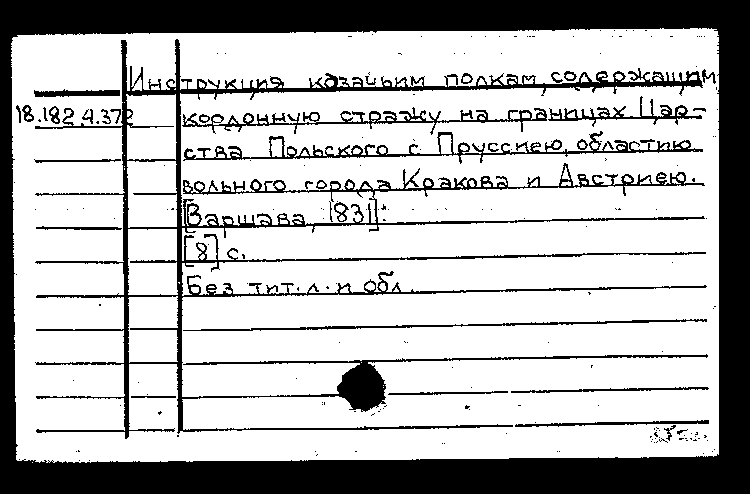 Инструкция козачьим полкам, содержащим
18.182.4.372 кордонную стражу на границах Цар-
ства Польского с Пруссиею, областию
вольного города Кракова и Австриею.
[Варшава, 1831]:
[8] с.
Без тит. л. и обл.